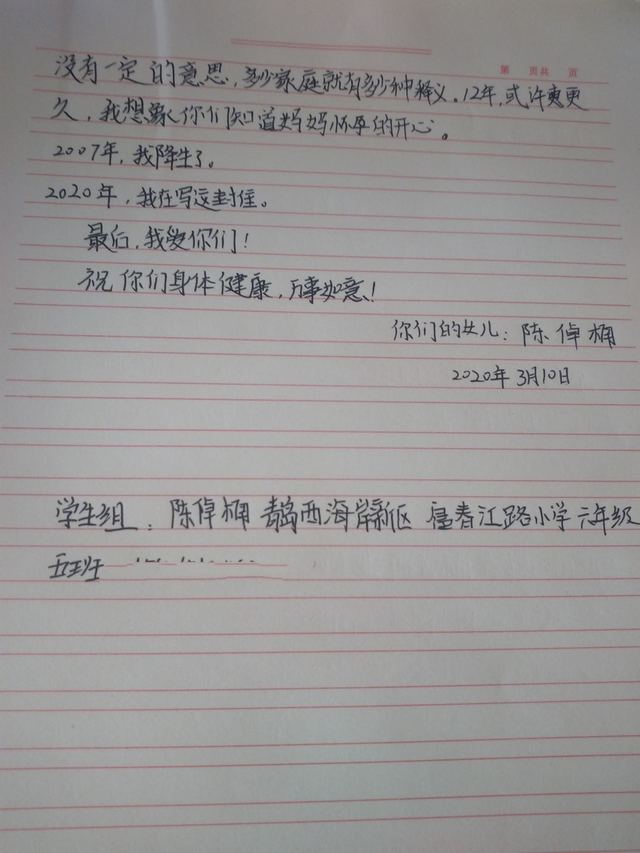 第 页共 页
没有一定的意思,多少家庭就有多少种释义。12年,或许更更
久,我想象你们知道妈妈怀孕的开心。
2007年,我降生了。
2020年,我在写这封信。
最后,我爱你们!
祝你们身体健康,万事如意!
你们的女儿:陈倬楠
2020年3月10日
学生组:陈倬楠 青岛西海岸新区 富春江路小学六年级
五班